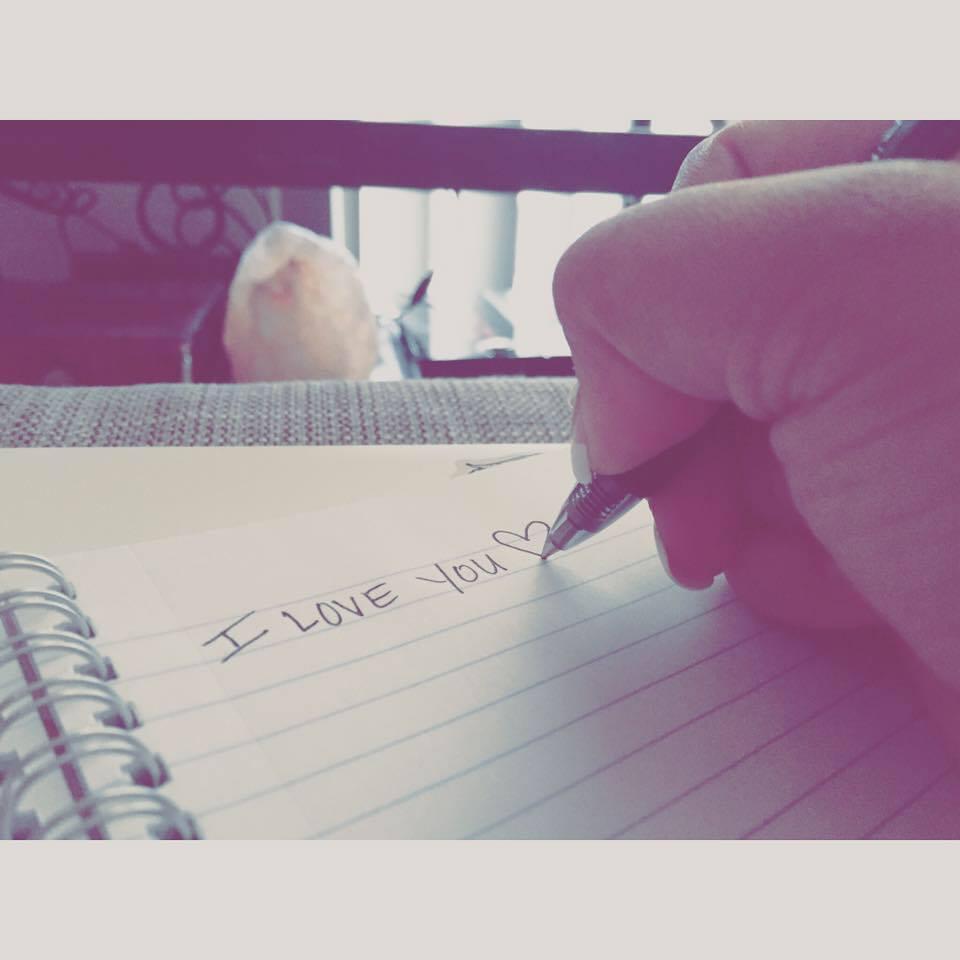 I LOVE YOU♡